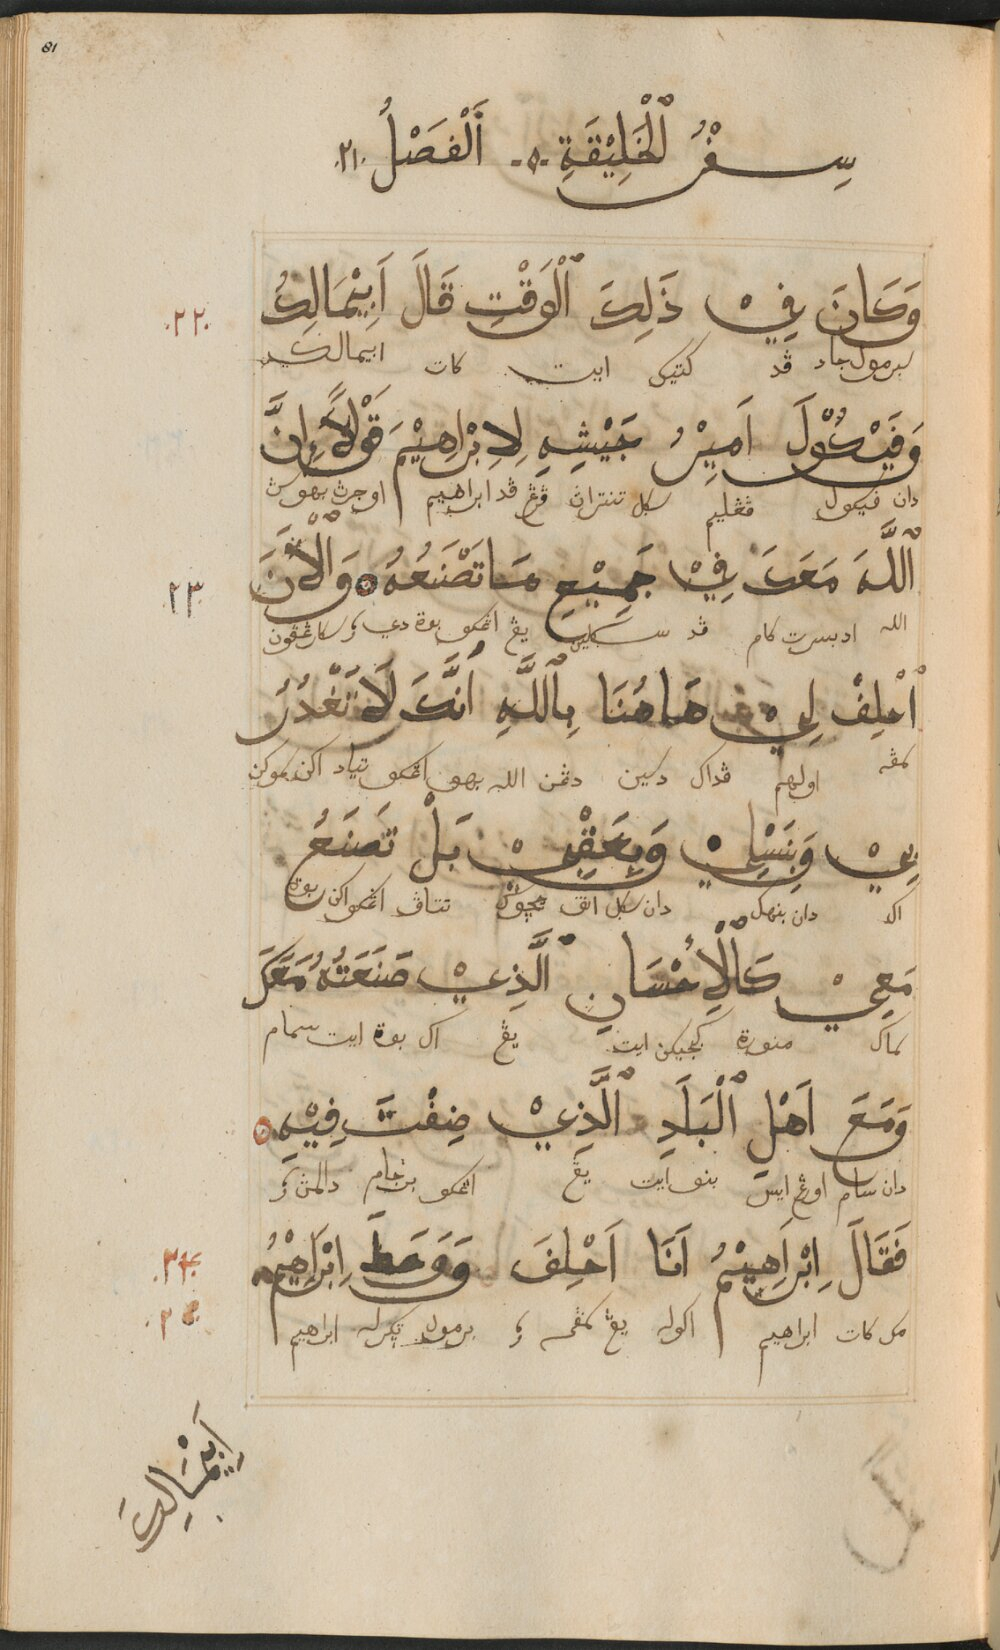 81
سِفْرُ ٱلْخَلِيْقَةِ ٠٥٠ اَلْفَصْلُ ٢١
٢٢
وَكَانَ فِيْ ذَلِكَ ٱلْوَقْتِ قَالَ اَبِيْمَالِكُ
برمول جاد ڤد كتيك ايت كات ابيمالك
وَفَيْكُوْلَ اَمِيْرُ جَيْشِهِ لِاِبْرَاهِيْمَ قَوْلاً اِنَّ
دان فيكول ڤڠليم سكل تنتران ڤد ابراهيم اوجرڽ بهوسڽ
٢٣
ٱللَّهَ مَعَكَ فِيْ جَمِيْعِ مَا تَصْنَعُهُ وَٱلْاَنَ
الله ادبسرت كام ڤد سكلين يڠ اڠكو بوة دي سكارڠڤون
اَحْلِفْ لِيْ هَاهُنَا بِٱللَّهِ اَنَّكَ لَا تَغْدُرُ
اولهم ڤداك دسين دڠن الله بهو اڠكو تياد اكن
بِيْ وَبِنَسْلِيْ وَبِعَقِبِيْ بَلْ تَصْنَعُ
اكد دان بنهك دان سكل انق چوچوك تتاڤ اڠكو اكن بوة
مَعِيْ كَٱلْاِحْسَانِ ٱلَّذِيْ صَنَعْتُهُ مَعَكَ
كماك منورة كبجيكن ايت يڠ اك بوة ايت سمام
وَمَعَ اَهْلِ ٱلْبَلَدِ ٱلَّذِيْ ضِفْتَ فِيْهِ
دان سام اورڠ ايس بنو ايت يڠ اڠكو برجام دالمڽ
٢٤
فَقَالَ اِبْرَاهِيْمُ اَنَا اَحْلِفَ وَوَعَظَ اِبْرَاهِيْمُ
٢٥
مك كات ابراهيم اكوله يڠ برموله ابراهيم
اَبِيْمَالِكَ